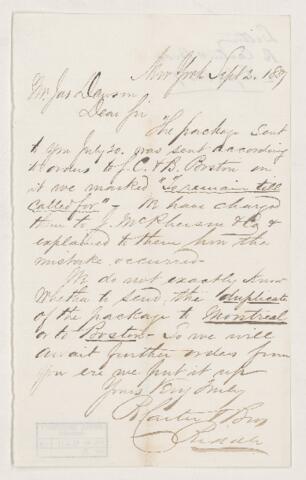 New York Sept 2. 18
Mr Jas Dawson
Dear Sir
The package sent
to you July 20. was sent according
to orders to J. C. & B. Boston on
it we marked "To remain till
called for" - We have charged
them to J. McPherson & Co &
explained to them how the
mistake occurred -
We do not exactly know
whether to send the duplicate
of the package to Montreal
or to Boston - So we will
await further orders from
you ere we put it up
Yours Very truly
R Carter & Bros